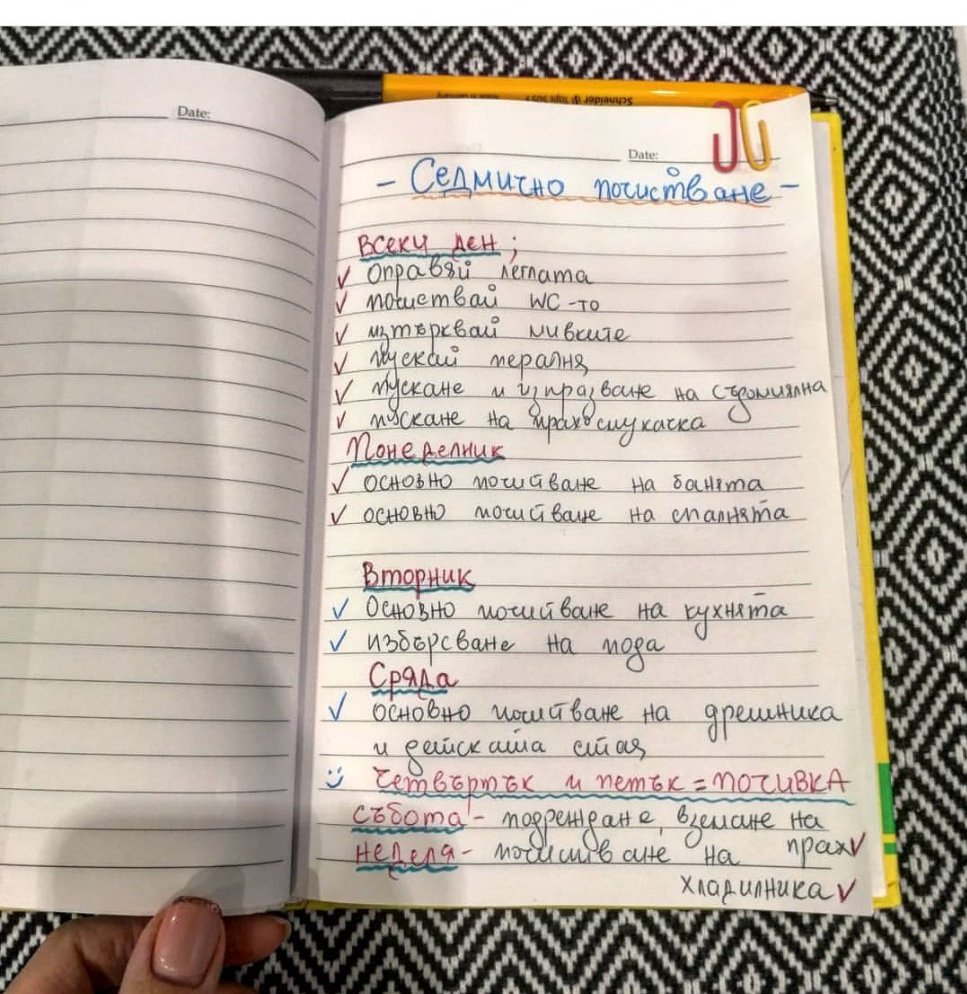 Date:
Schneider Tops 505 F Made in Germany
Date:
- Седмично почистване -
Всеки ден:
✓ Оправяй леглата
✓ почиствай WC-то
✓ изтърквай мивките
✓ пускай пералня
✓ пускане и изпразване на съдомиялна
✓ пускане на прахосмукачка
Понеделник
✓ основно почистване на банята
✓ основно почистване на спалнята
Вторник
✓ Основно почистване на кухнята
✓ избърсване на пода
Сряда
✓ основно почистване на дрешника
и детската стая
Четвъртък и петък = ПОЧИВКА
Събота - подреждане, вземане на
прах ✓
неделя - почистване на
хладилника ✓